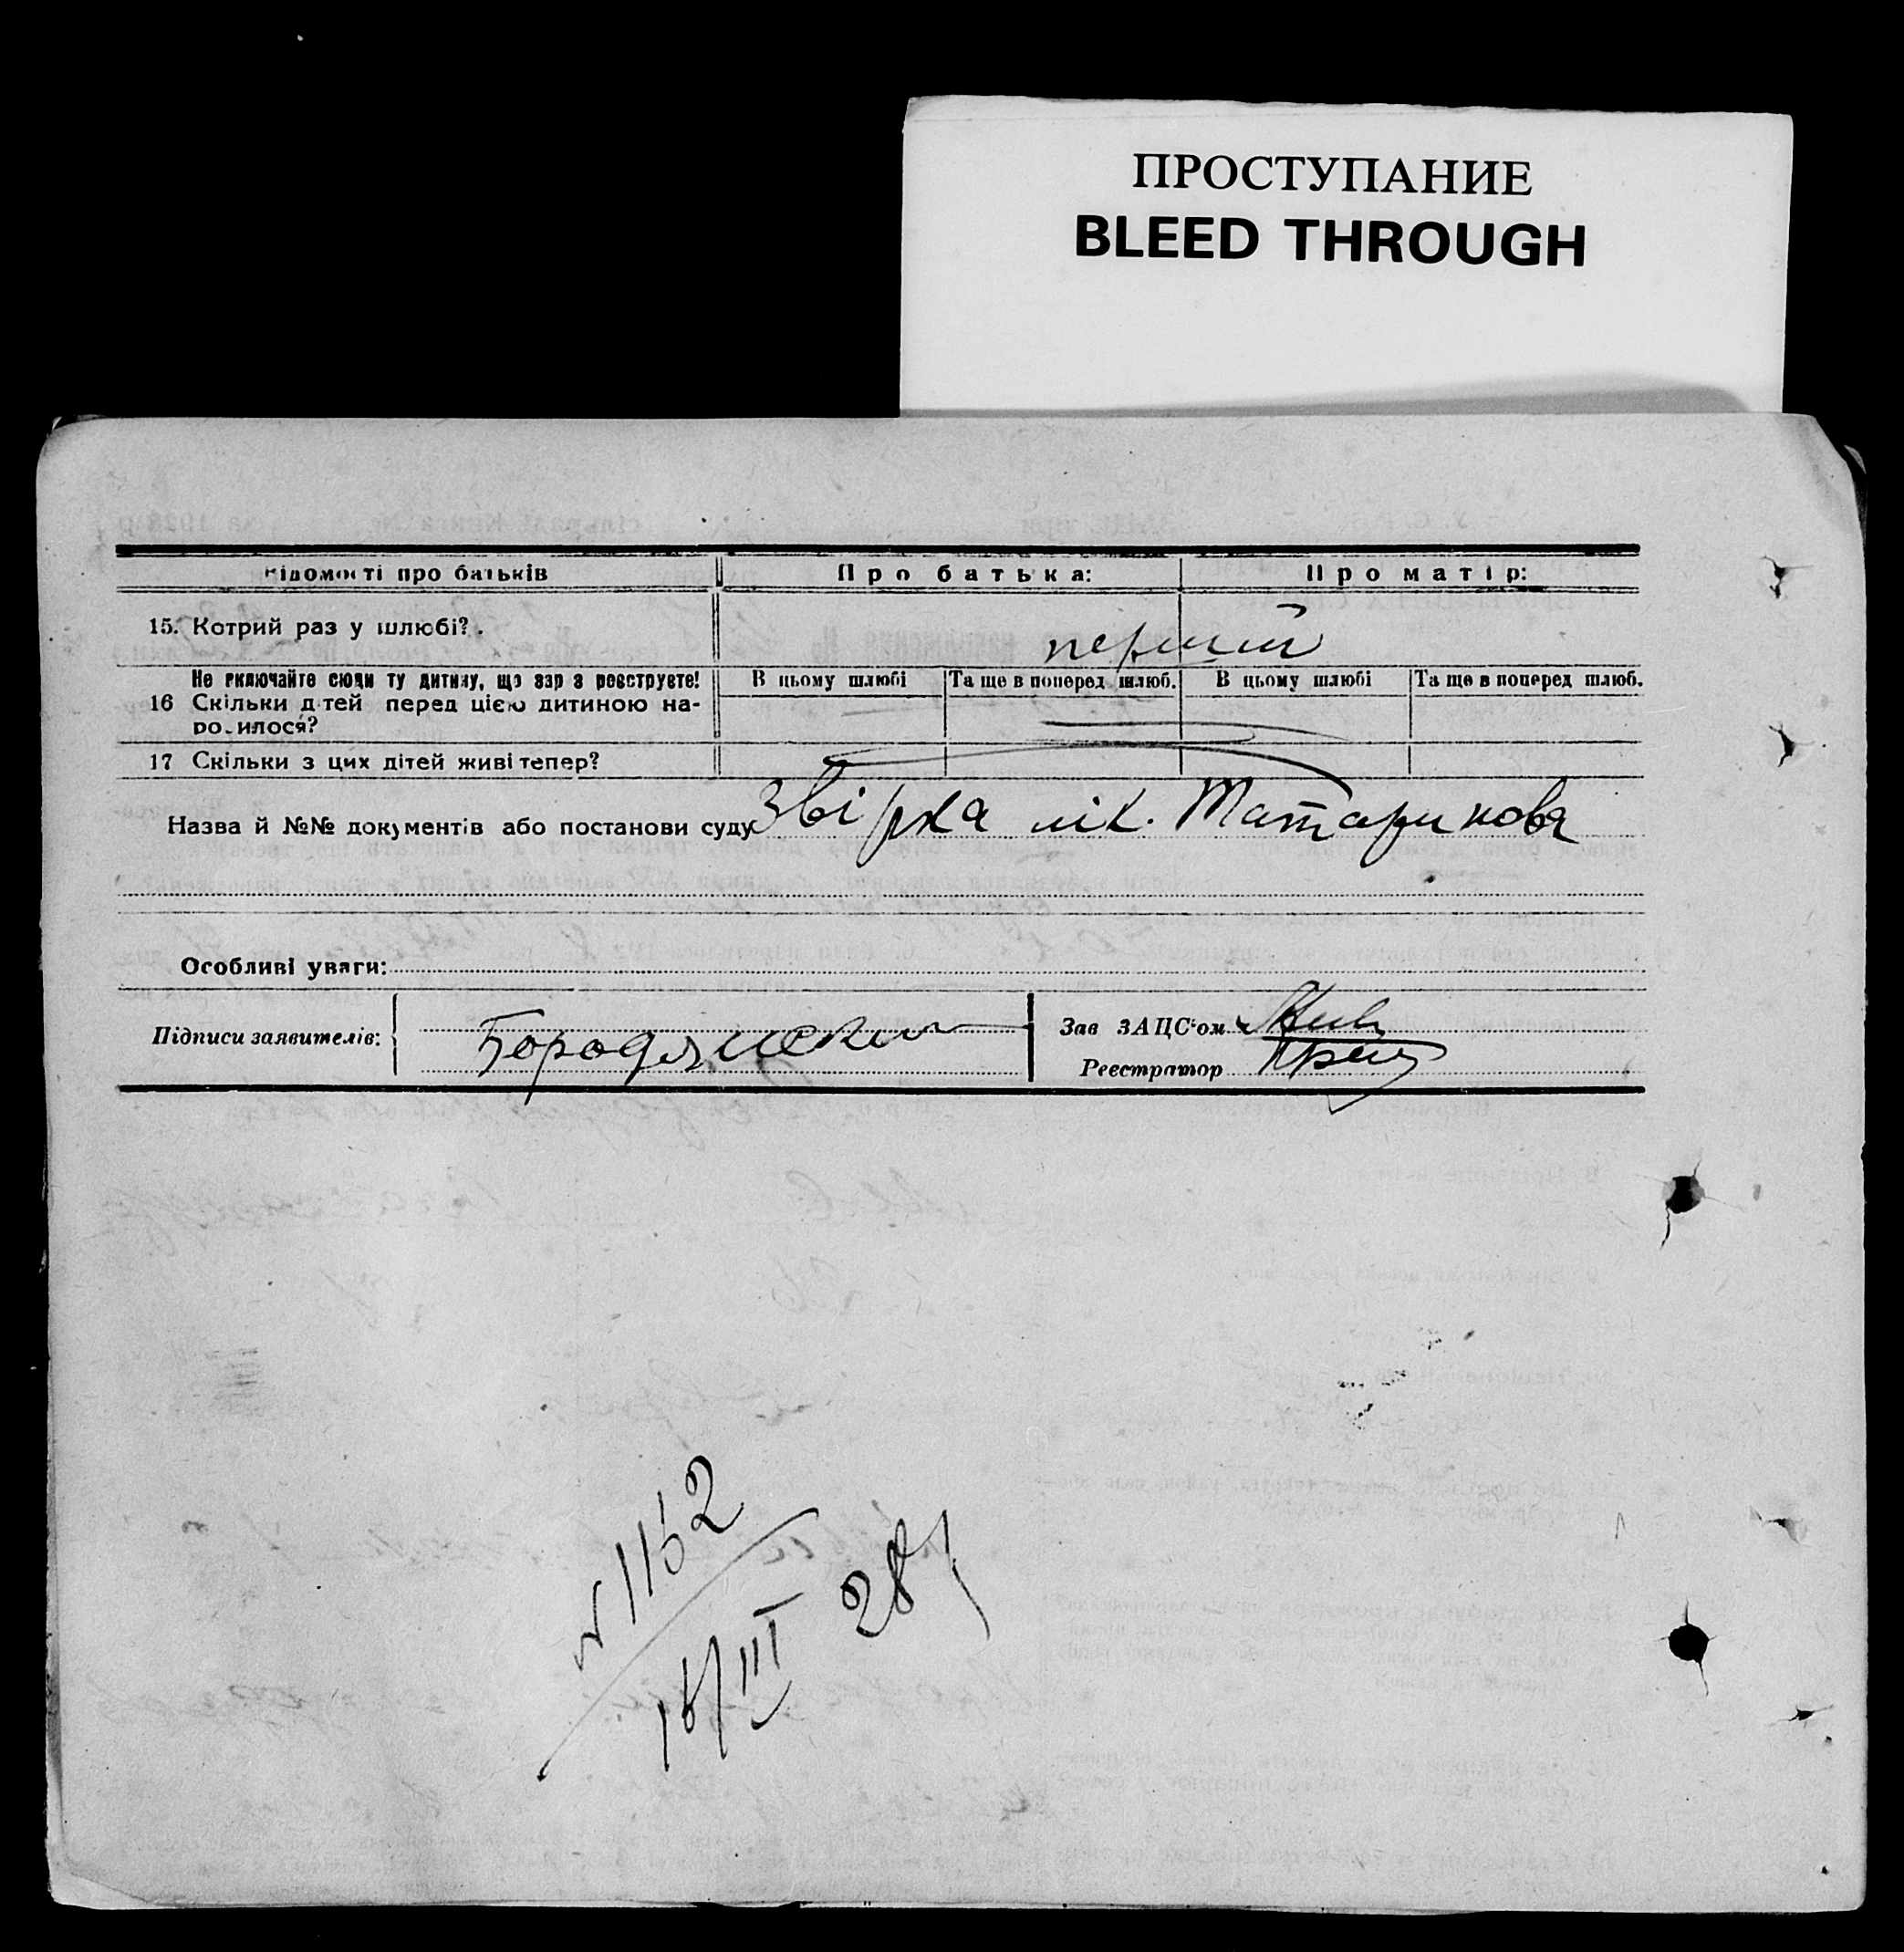 ПРОСТУПАНИЕ
BLEED THROUGH
Відомості про батьків
Про батька:
Про матір:
15. Котрий раз у шлюбі?.
перший
Не включайте сюди ту дитину, що зараз реєструєте!
16 Скільки дітей перед цією дитиною на-
родилося?
В цьому шлюбі
Та ще в поперед шлюб.
В цьому шлюбі
Та ще в поперед шлюб.
17 Скільки з цих дітей живі тепер?
Назва й №№ документів або постанови суду
звірка лік. Татаринова
Особливі уваги:
Підписи заявителів:
Бородянский
Зав ЗАЦС'ом
Реєстратор
N 1162
16/III 28